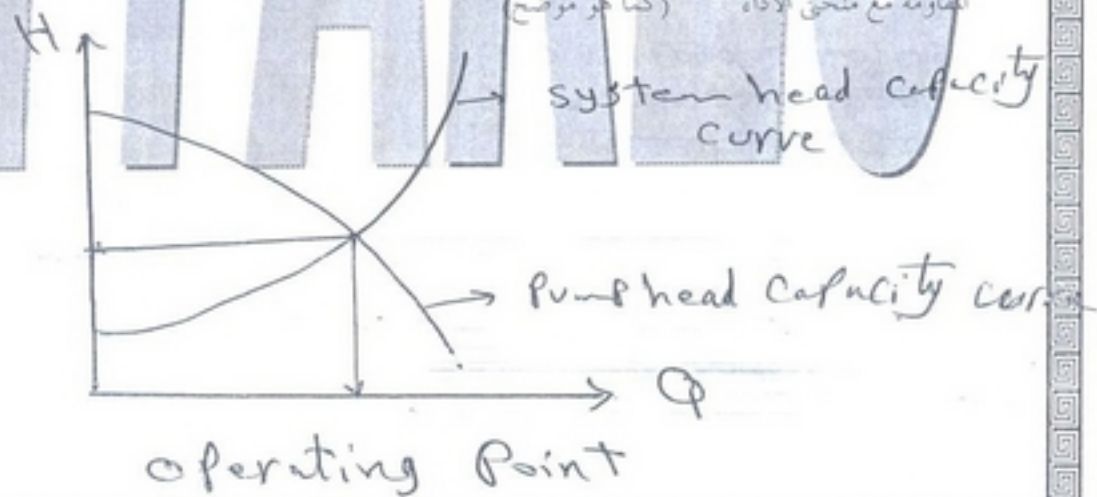 المقاومة مع منحنى الأداء (كما هو موضح)
H
system head capacity
curve
Pump head capacity
Q
operating Point